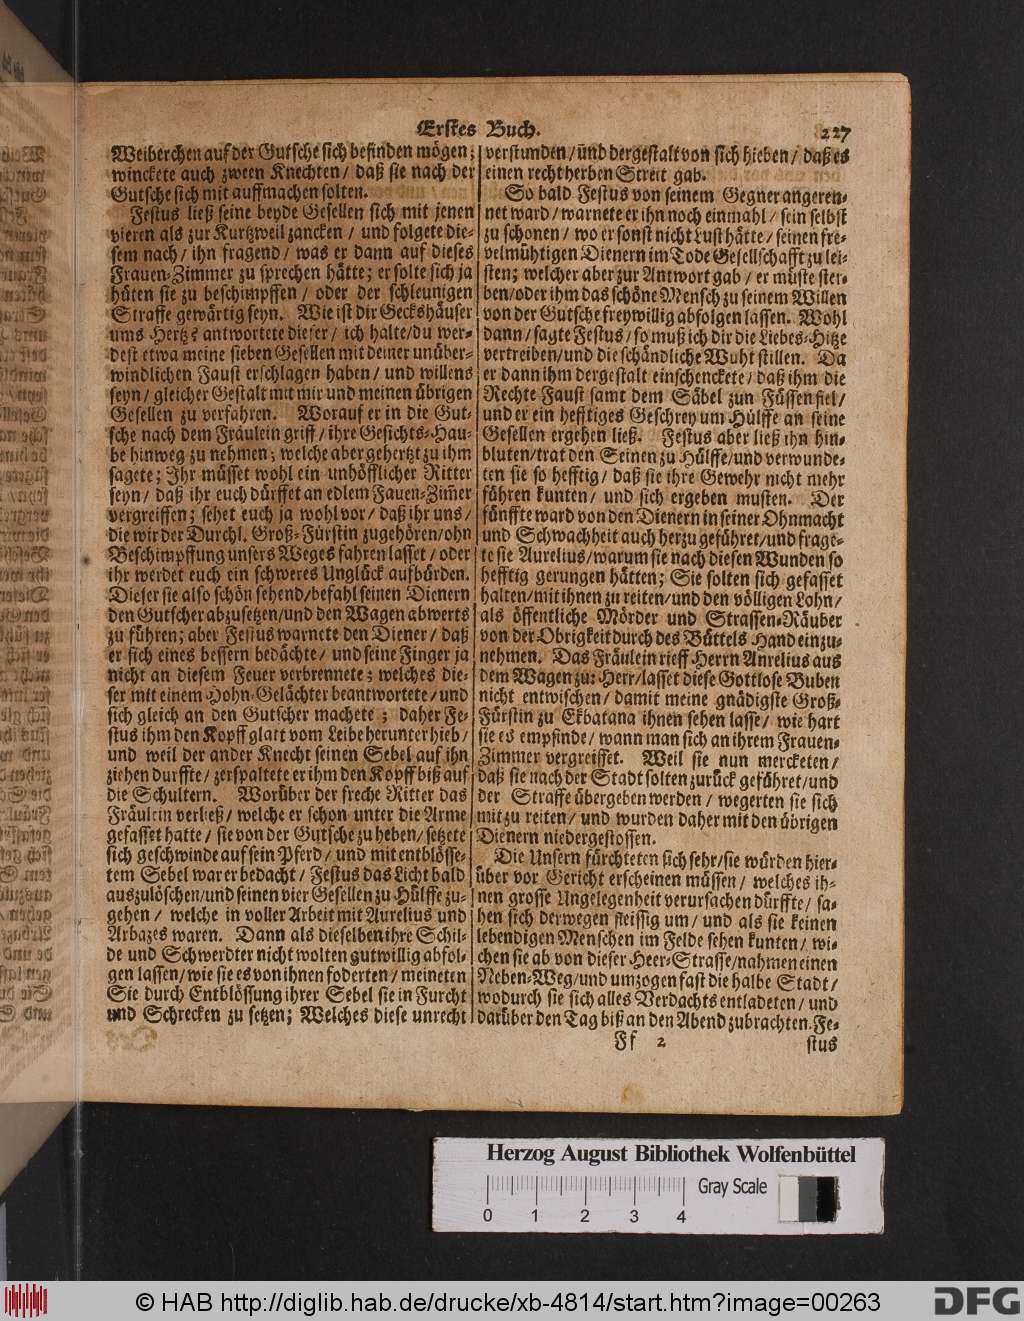 Erstes Buch. 227
Weiberchen auf der Gutsche sich befinden mögen;
winckete auch zween Knechten/ daß sie nach der
Gutsche sich mit auffmachen solten.
Festus ließ seine beyde Gesellen sich mit jenen
vieren als zur Kurtzweil zancken / und folgete die-
sem nach/ ihn fragend/ was er dann auf dieses
Frauen-Zimmer zu sprechen hätte; er solte sich ja
hüten sie zu beschimpffen / oder der schleunigen
Straffe gewärtig seyn. Wie ist dir Geckshäuser
ums Hertz? antwortete dieser/ ich halte/du wer-
dest etwa meine sieben Gesellen mit deiner unüber-
windlichen Faust erschlagen haben/ und willens
seyn/ gleicher Gestalt mit mir und meinen übrigen
Gesellen zu verfahren. Worauf er in die Gut-
sche nach dem Fräulein griff/ ihre Gesichts-Hau-
be hinweg zu nehmen; welche aber gehertzt zu ihm
sagete; Ihr müsset wohl ein unhöfflicher Ritter
seyn/ daß ihr euch dürffet an edlem Fauen-Zim̃er
vergreiffen; sehet euch ja wohl vor/ daß ihr uns/
die wir der Durchl. Groß-Fürstin zugehören/ohn
Beschimpffung unsers Weges fahren lasset/ oder
ihr werdet euch ein schweres Unglück aufbürden.
Dieser sie also schön sehend/befahl seinen Dienern
den Gutscher abzusetzen/und den Wagen abwerts
zu führen; aber Festus warnete den Diener/ daß
er sich eines bessern bedächte/ und seine Finger ja
nicht an diesem Feuer verbrennete; welches die-
ser mit einem Hohn-Gelächter beantwortete/ und
sich gleich an den Gutscher machete; daher Fe-
stus ihm den Kopff glatt vom Leibe herunter hieb/
und weil der ander Knecht seinen Sebel auf ihn
ziehen durffte/ zerspaltete er ihm den Kopff biß auf
die Schultern. Worüber der freche Ritter das
Fräulein verließ/ welche er schon unter die Arme
gefasset hatte/ sie von der Gutsche zu heben/ setzete
sich geschwinde auf sein Pferd/ und mit entblösse-
tem Sebel war er bedacht/ Festus das Licht bald
auszulöschen/und seinen vier Gesellen zu Hülffe zu-
gehen / welche in voller Arbeit mit Aurelius und
Arbazes waren. Dann als dieselben ihre Schil-
de und Schwerdter nicht wolten gutwillig abfol-
gen lassen/ wie sie es von ihnen foderten/ meineten
Sie durch Entblössung ihrer Sebel sie in Furcht
und Schrecken zu setzen; Welches diese unrecht
verstunden/ und dergestalt von sich hieben/ daß es
einen recht herben Streit gab.
So bald Festus von seinem Gegner angeren-
net ward/ warnete er ihn noch einmahl/ sein selbst
zu schonen/ wo er sonst nicht Lust hätte/ seinen fre-
velmühtigen Dienern im Tode Gesellschafft zu lei-
sten; welcher aber zur Antwort gab/ er müste ster-
ben/oder ihm das schöne Mensch zu seinem Willen
von der Gutsche freywillig abfolgen lassen. Wohl
dann/ sagte Festus/ so muß ich dir die Liebes-Hitze
vertreiben/und die schändliche Wuht stillen. Da
er dann ihm dergestalt einschenckete/ daß ihm die
Rechte Faust samt dem Säbel zun Füssen fiel/
und er ein hefftiges Geschrey um Hülffe an seine
Gesellen ergehen ließ. Festus aber ließ ihn hin-
bluten/trat den Seinen zu Hülffe/und verwunde-
ten sie so hefftig/ daß sie ihre Gewehr nicht mehr
führen kunten/ und sich ergeben musten. Der
fünffte ward von den Dienern in seiner Ohnmacht
und Schwachheit auch herzu geführet/und frage-
te sie Aurelius/ warum sie nach diesen Wunden so
hefftig gerungen hätten; Sie solten sich gefasset
halten/mit ihnen zu reiten/und den völligen Lohn/
als öffentliche Mörder und Strassen-Räuber
von der Obrigkeit durch des Büttels Hand einzu-
nehmen. Das Fräulein rieff Herrn Anrelius aus
dem Wagen zu: Herr/lasset diese Gottlose Buben
nicht entwischen/ damit meine gnädigste Groß-
Fürstin zu Ekbatana ihnen sehen lasse/ wie hart
sie es empfinde/ wann man sich an ihrem Frauen-
Zimmer vergreiffet. Weil sie nun mercketen/
daß sie nach der Stadt solten zurück geführet/und
der Straffe übergeben werden/ wegerten sie sich
mit zu reiten/ und wurden daher mit den übrigen
Dienern niedergestossen.
Die Unsern fürchteten sich sehr/sie würden hier-
über vor Gericht erscheinen müssen/ welches ih-
nen grosse Ungelegenheit verursachen dürffte/ sa-
hen sich derwegen fleissig um/ und als sie keinen
lebendigen Menschen im Felde sehen kunten/ wi-
chen sie ab von dieser Heer-Strasse/nahmen einen
Neben-Weg/und umzogen fast die halbe Stadt/
wodurch sie sich alles Verdachts entladeten/ und
darüber den Tag biß an den Abend zubrachten. Fe-
Ff 2 stus
Herzog August Bibliothek Wolfenbüttel
Gray Scale
0 1 2 3 4
© HAB http://diglib.hab.de/drucke/xb-4814/start.htm?image=00263
DFG